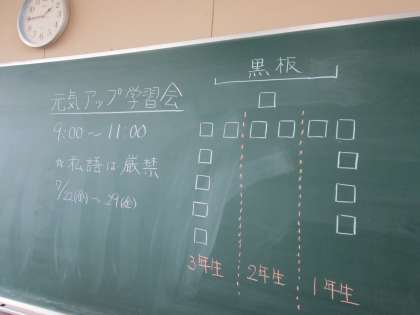 元気アップ学習会
9:00〜11:00
☆私語は厳禁
7/22(金)〜29(金)
黒板
3年生
2年生
1年生